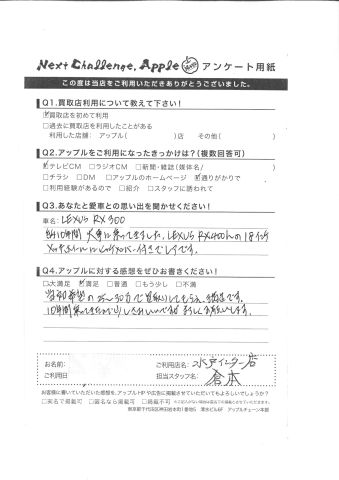 Next Challenge, Apple アンケート用紙
この度は当店をご利用いただきありがとうございました。
Q1.買取店利用について教えて下さい!
☑買取店を初めて利用
□過去に買取店を利用したことがある
利用した店舗: アップル( )店 その他( )
Q2.アップルをご利用になったきっかけは?(複数回答可)
☑テレビCM □ラジオCM □新聞・雑誌(媒体名/ )
□チラシ □DM □アップルのホームページ ☑通りがかりで
□利用経験があるので □紹介 □スタッフに誘われて
Q3.あなたと愛車との思い出を聞かせください!
車名: LEXUS RX 300
約10年間 大事に乗ってきました。LEXUS RX400hの18インチ
Q4.アップルに対する感想をぜひお書きください!
□大満足 ☑満足 □普通 □もう少し □不満
で買取りしてもらい、満足です。
10年間
お名前: ご利用店名: 水戸インター店
ご利用日 担当スタッフ名: 倉本
お客様に書いていただいた感想を、アップルHPや広告に掲載させていただいてもよろしいでしょうか?
□実名で掲載可 □匿名なら掲載可 □掲載不可
東京都千代田区神田岩本町1番地5 清水ビル6F アップルチェーン本部